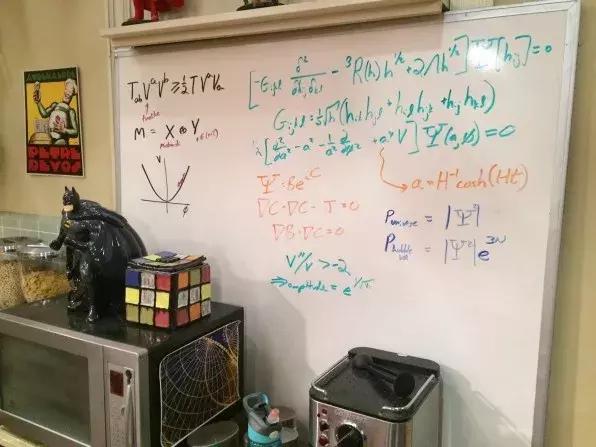 T_ab V^a V^b ≥ ½ T V^a V_a
M = X ⊕ Y
V
φ
[-G_ijkl δ²/δh_ij δh_kl - ³R(h) h^½ + 2Λh^½] Ψ[h_ij] = 0
G_ijkl = ½√h (h_ik h_jl + h_il h_jk + h_ij h_kl)
½[∂²/∂a² - a² - 1/a² ∂²/∂φ² + a⁴ V] Ψ(a,φ) = 0
→ a = H⁻¹ cosh(Ht)
Ψ = Be^iC
∇C·∇C - T = 0
∇B·∇C = 0
P_universe = |Ψ²|
P_bubble = |Ψ²| e^3N
V''/V > -2
⇒ amplitude =
PETRE
DEVOS